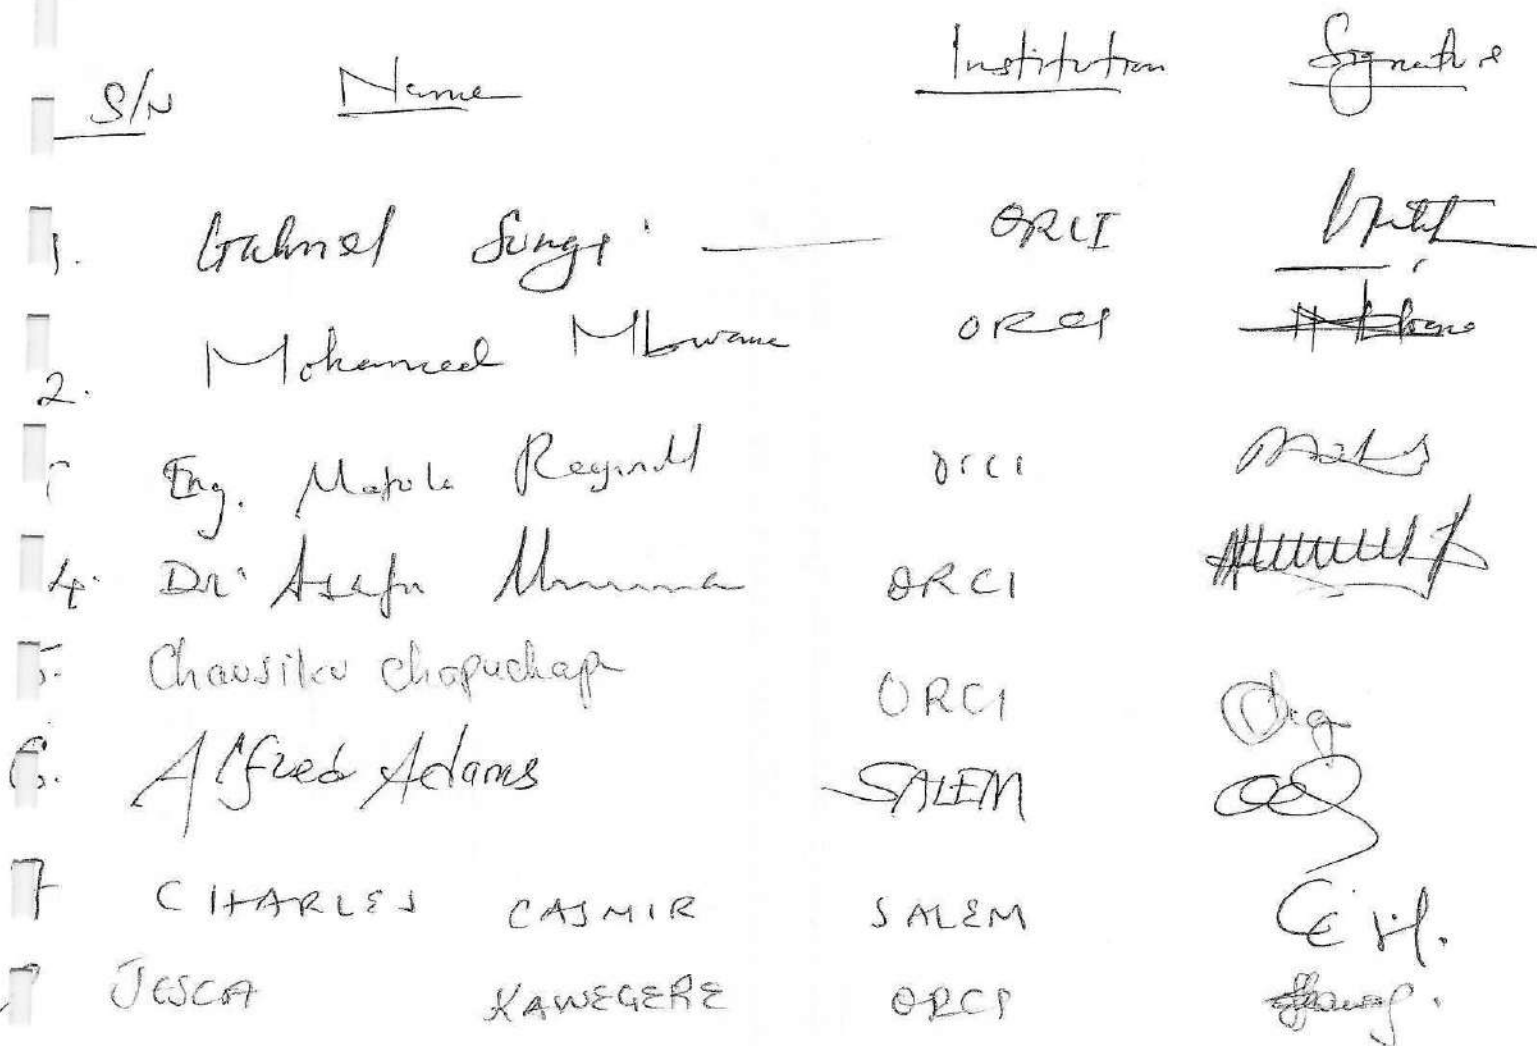 S/N Name Institution Signature
1. Gabriel Sungi ORCI
2. Mohamed Mbwana ORCI
Eng. Mapula Reginald ORCI
4. Dr. Asafu Munema ORCI
5. Chausiku Chapuchap ORCI
6. Alfred Adams SALEM
7 CHARLES CASMIR SALEM
JESCA KAWEGERE ORCI